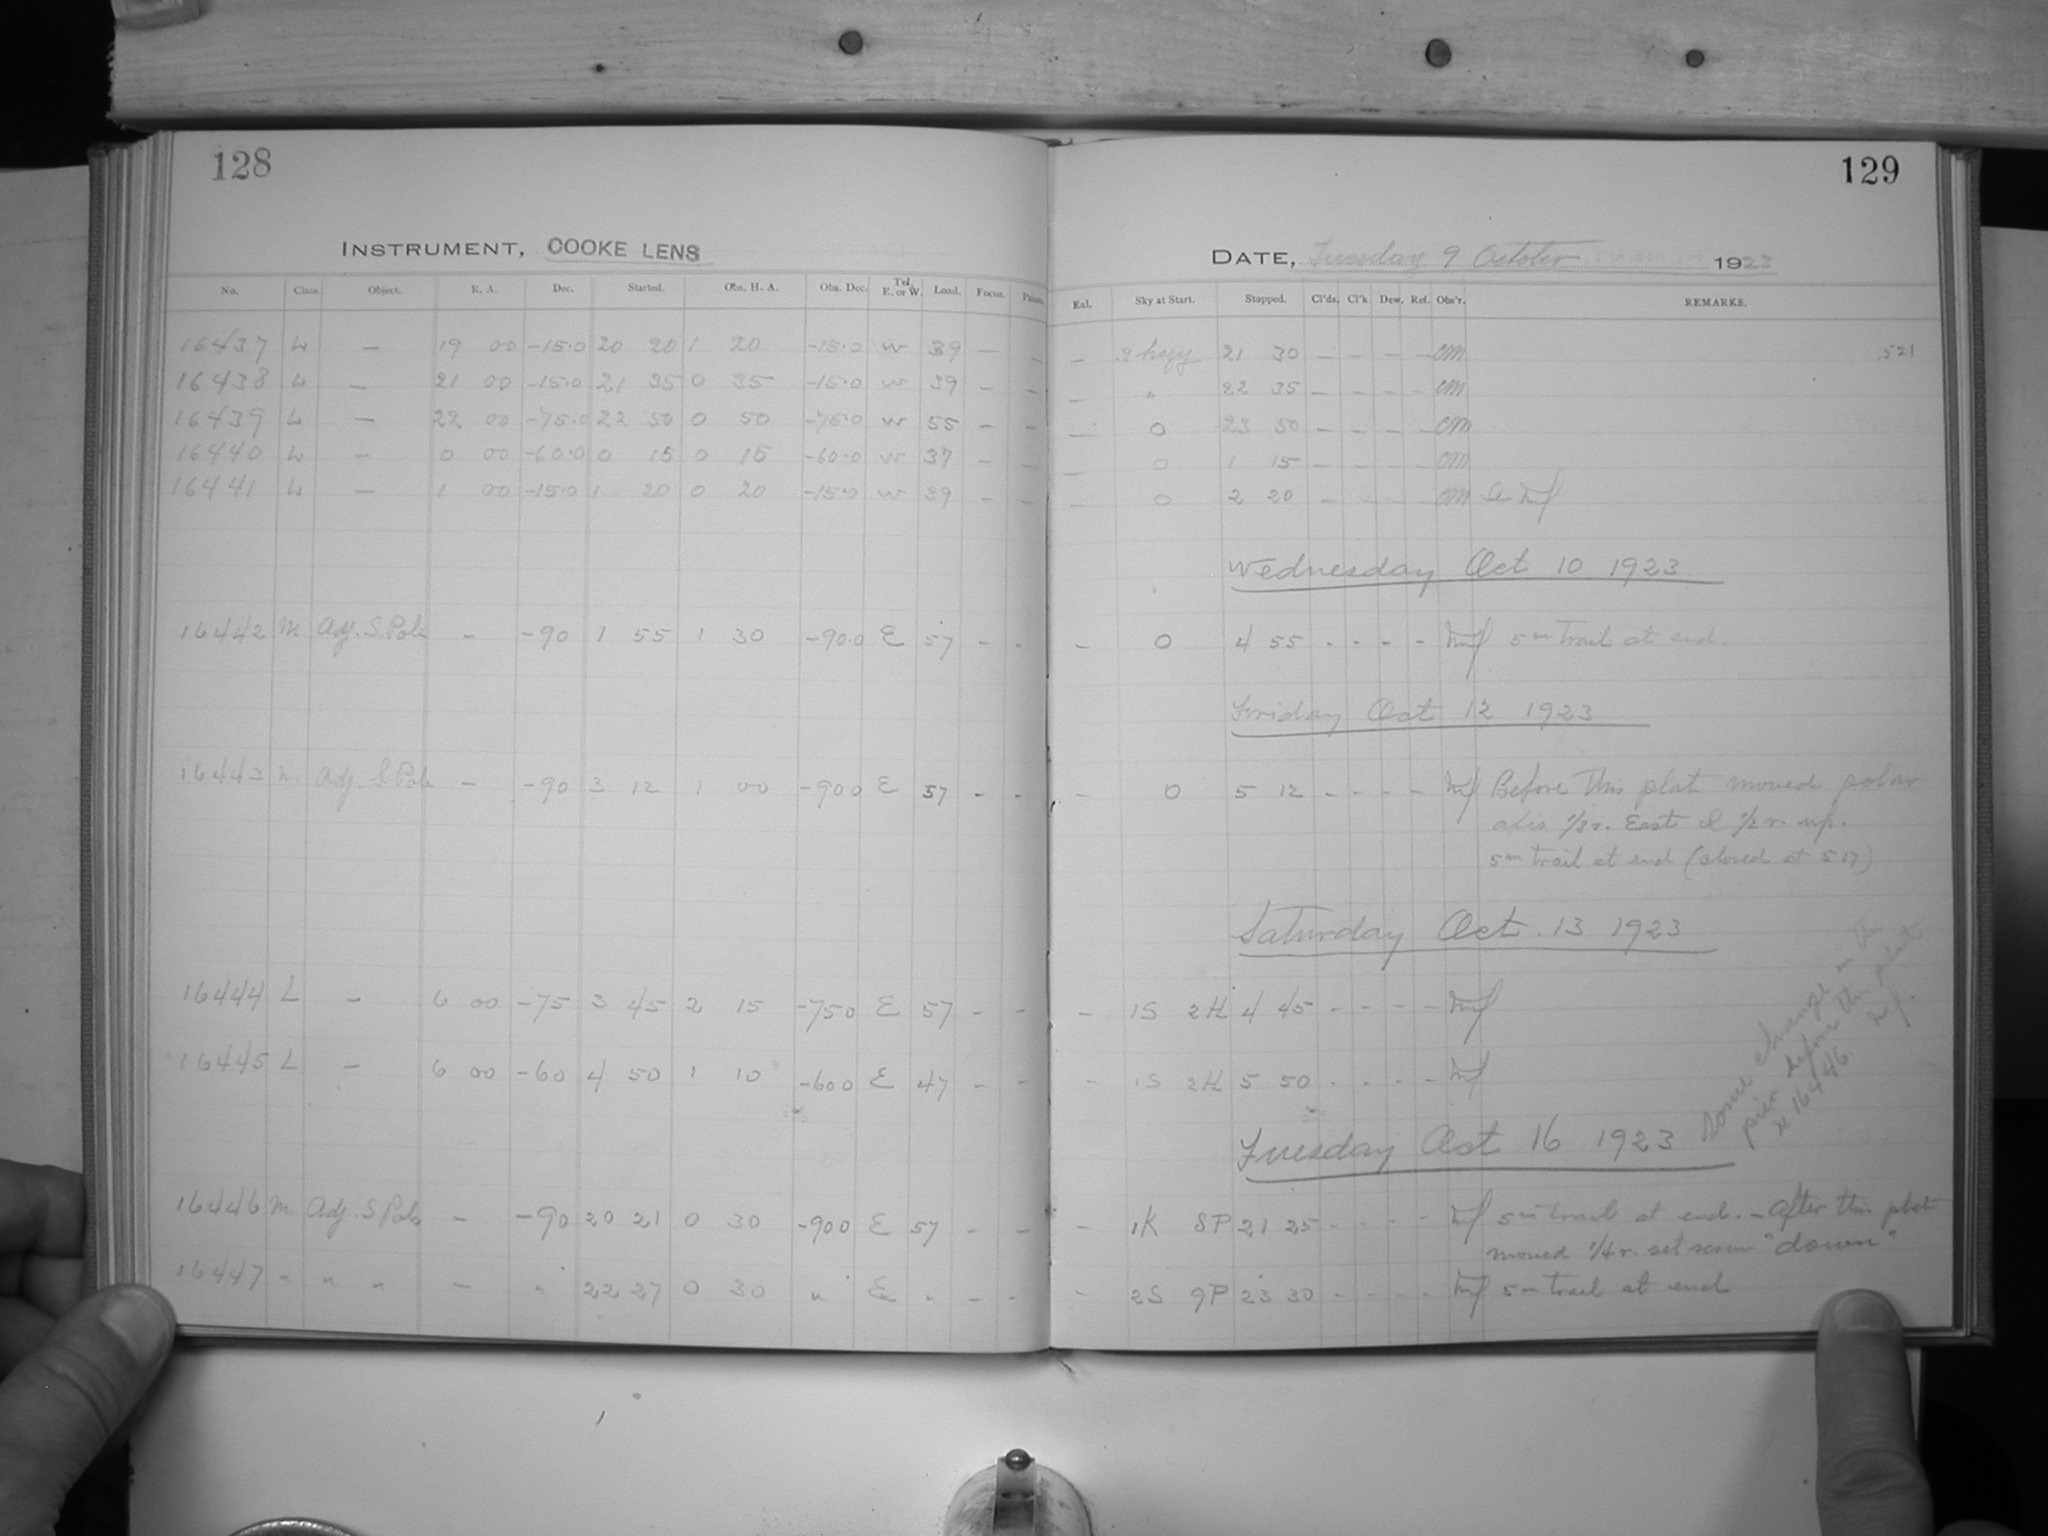 128
129
INSTRUMENT, COOKE LENS
DATE, Tuesday 9 October 1923
No. Class. Object. R. A. Dec. Started. Obs. H. A. Obs. Dec. Tel. E. or W. Load. Focus.
Eal. Sky at Start. Stopped. Cl'ds. Cl'k Dew. Ref. Obs'r. REMARKS.
16437 L — 19 00 -15.0 20 20 1 20 -15.0 W 39 — — — hazy 21 30 — — — — CM .521
16438 L — 21 00 -15.0 21 35 0 35 -15.0 W 39 — — — " 22 35 — — — — CM
16439 L — 22 00 -75.0 22 50 0 50 -75.0 W 55 — — — 0 23 50 — — — — CM
16440 L — 0 00 -60.0 0 15 0 15 -60.0 W 37 — — — 0 1 15 — — — — CM
16441 L — 1 00 -15.0 1 20 0 20 -15.0 W 39 — — — 0 2 20 — — — — CM
Wednesday Oct 10 1923
16442 M Adj. S. Pole - -90 1 55 1 30 -90.0 E 57 - - - 0 4 55 - - - - 5m trail at end.
Friday Oct 12 1923
16443 M Adj. S Pole - -90 3 12 1 00 -900 E 57 - - - 0 5 12 - - - - Before this plat moved polar
axis 1/3 r. East & 1/2 r. up.
5m trail at end (closed at 5 17)
Saturday Oct. 13 1923
16444 L - 6 00 -75 3 45 2 15 -750 E 57 - - - 1S 2H 4 45 - - - -
16445 L - 6 00 -60 4 50 1 10 -600 E 47 - - - 1S 2H 5 50 - - - -
Some change in the
pier before the plat
x 16446.
Tuesday Oct 16 1923
16446 M. Adj. S Pole - -90 20 21 0 30 -900 E 57 - - - 1K 8P 21 25 - - - - 5m trail at end. - After this plat
moved 1/4 r. set screw "down"
16447 " " " - " 22 27 0 30 " E " - - - 2S 9P 23 30 - - - - 5m trail at end